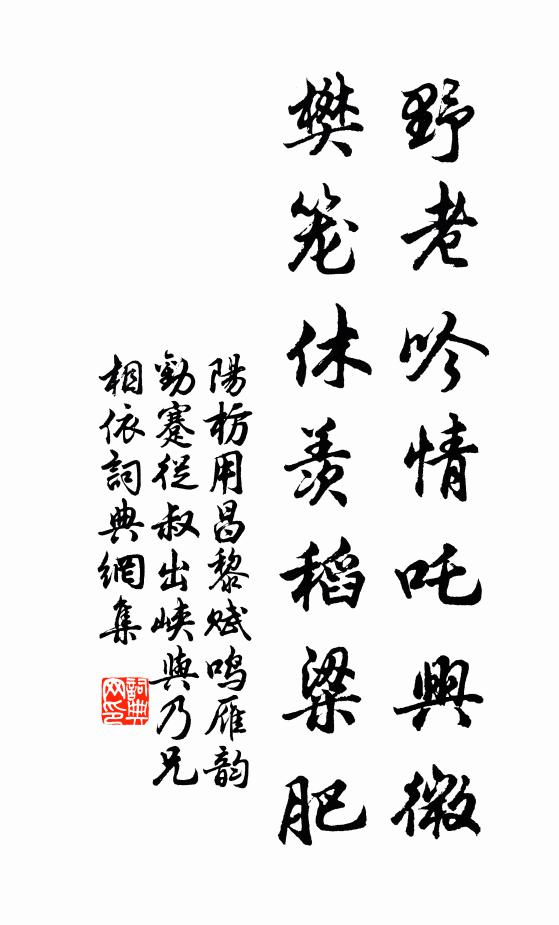 野老吟情吒興微
樊笼休羡稻粱肥
陽枋用昌黎赋鸣雁韵
勸蹇從叔出峽與乃兄
相依詞典網集
詞典网印